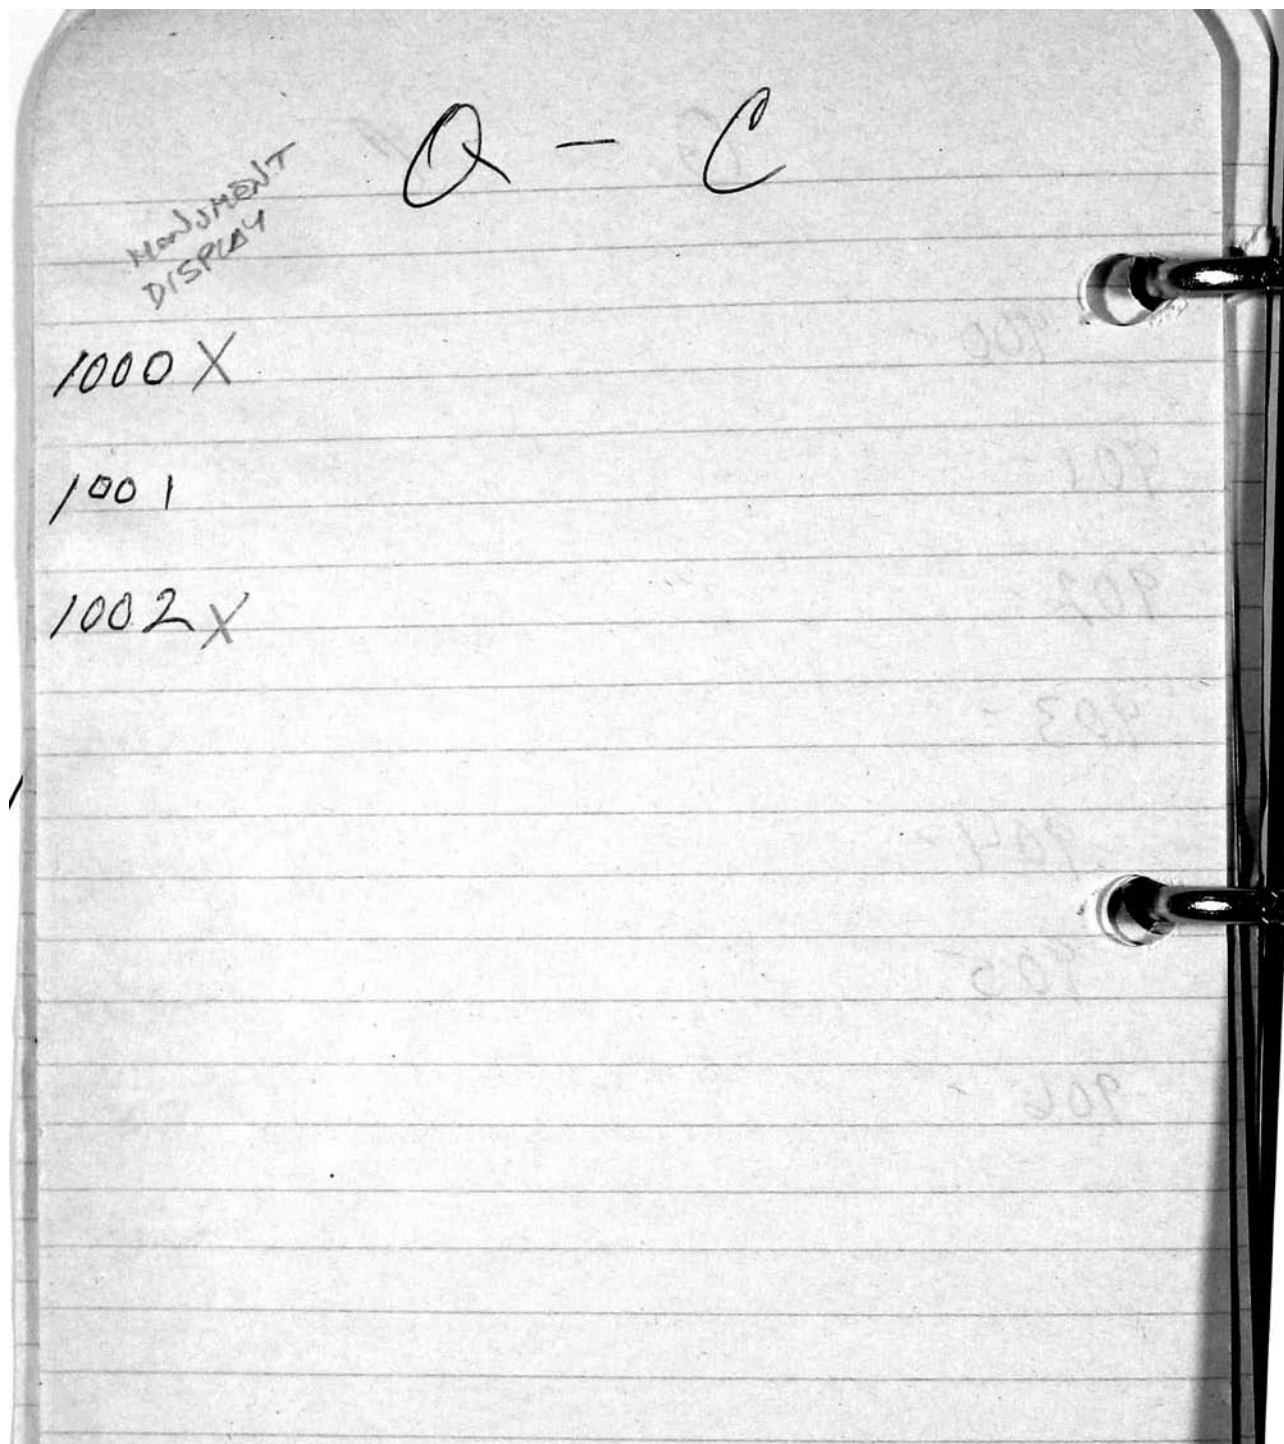 Q - C
MONUMENT
DISPLAY
1000 X
1001
1002 X